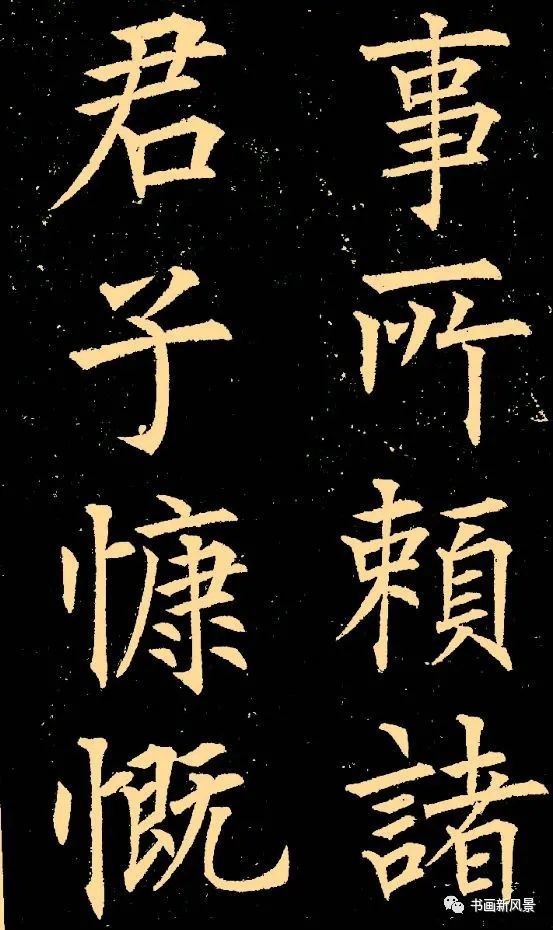 事所頼諸
君子慷慨
书画新风景